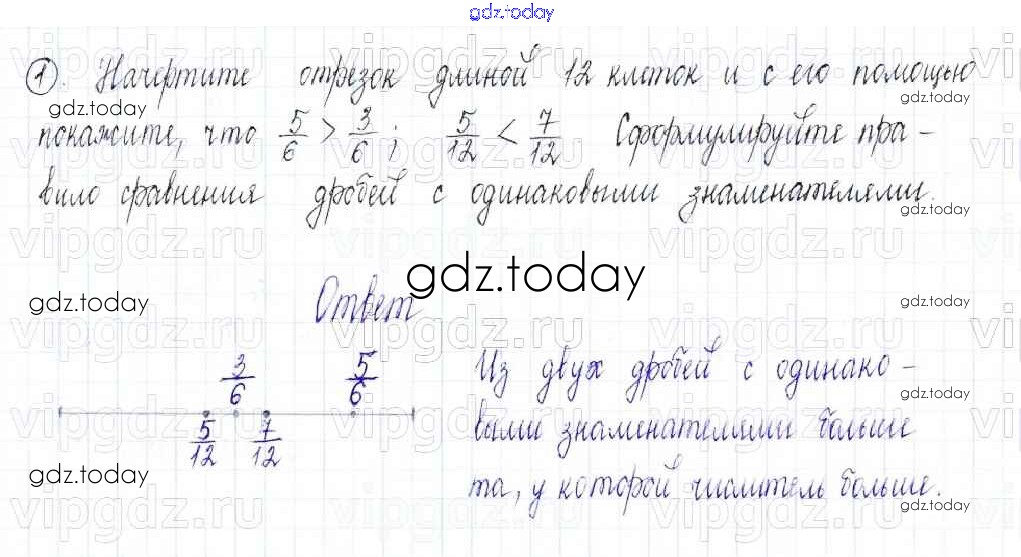 gdz.today
1. Начертите отрезок длиной 12 клеток и с его помощью
gdz.today
покажите, что 5/6 > 3/6; 5/12 < 7/12 Сформулируйте пра-
вило сравнения дробей с одинаковыми знаменателями.
gdz.today
vipgdz.ru vipgdz.ru vipgdz.ru
gdz.today
gdz.today
Ответ
gdz.today
3/6 5/6
5/12 7/12
Из двух дробей с одинако-
выми знаменателями больше
та, у которой числитель больше.
gdz.today
gdz.today